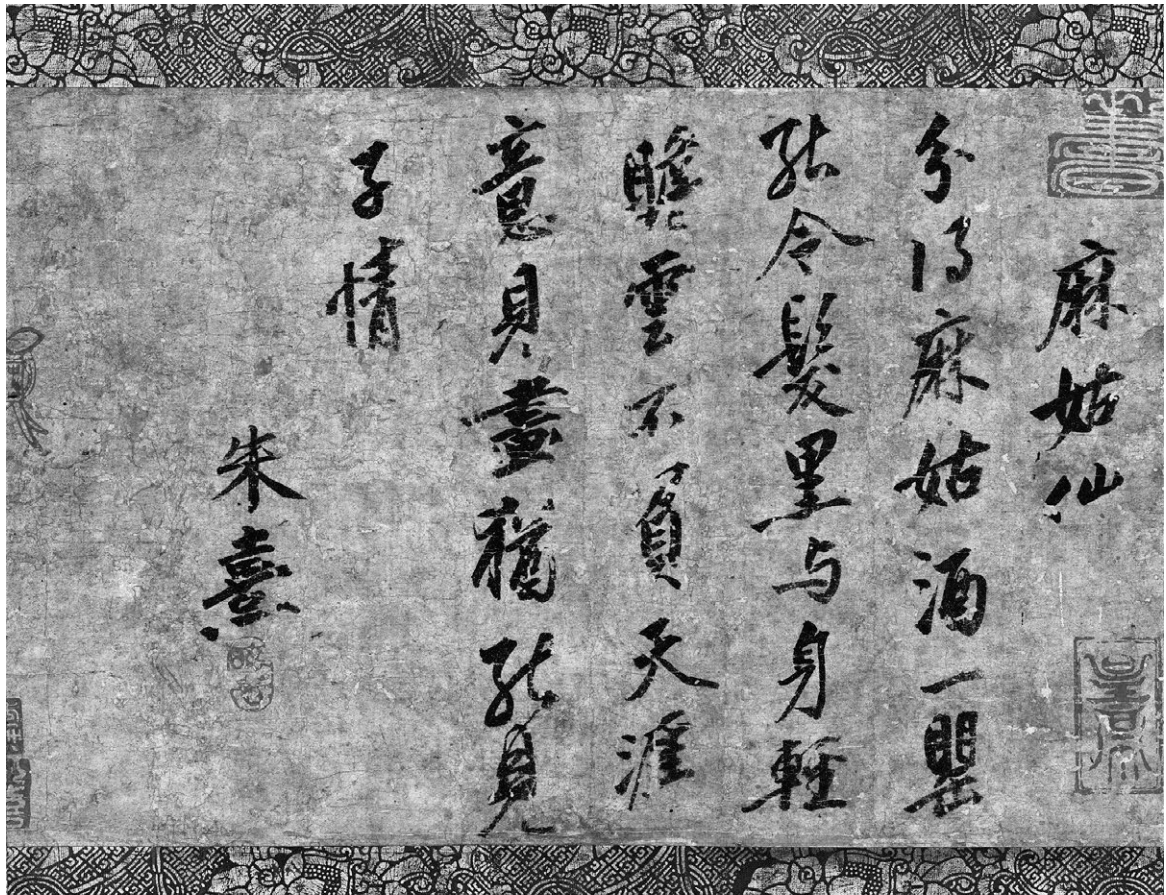 麻姑仙
分得麻姑酒一罌
能令髮黑与身輕
瞻雲不負天涯
意見
子情
朱熹